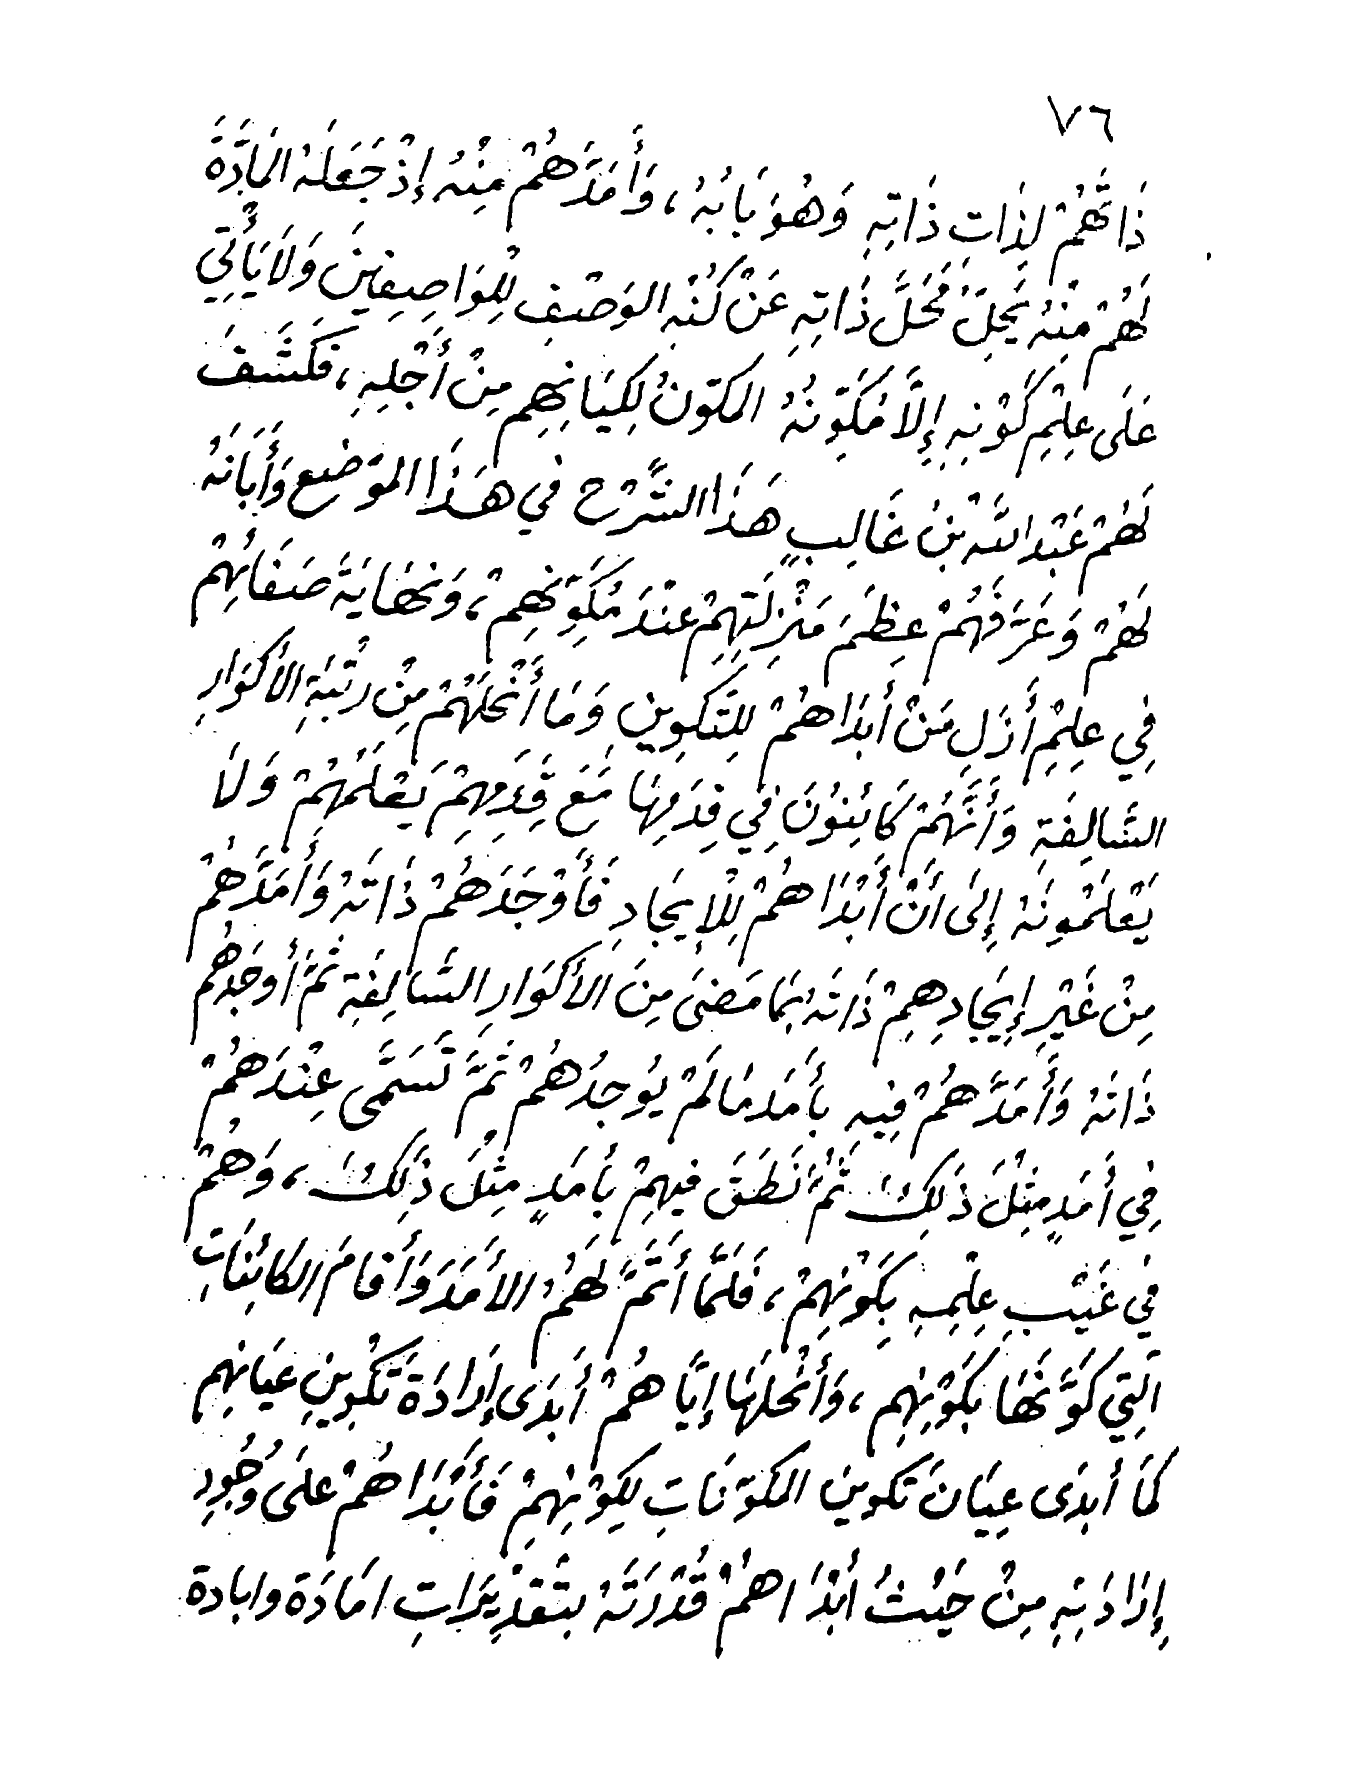 ٧٦
ذَاتَهُمْ لِذَاتِ ذَاتِهِ وَهُوَ بَابُهُ ، وَأَمَدَّهُمْ مِنْهُ إِذْ جَعَلَهُ المَادَّةَ
لَهُمْ مِنْهُ يَجِلُّ مَحَلَّ ذَاتِهِ عَنْ كُنْهِ الوَصْفِ لِلْوَاصِفِينَ وَلَا يَأْتِي
عَلَى عِلْمِ كَوْنِهِ إِلَّا مُكَوِّنُهُ المكَوّنُ لِكِيَانِهِم مِنْ أَجْلِهِ ، فَكَشَفَ
لَهُمْ عَبْدُ اللَّه بْنُ غَالِبٍ هَذَا الشَّرْحَ في هَذَا الموَضِع وَأَبَانَهُ
لَهُمْ وَعَرَّفَهُمْ عِظَمَ مَنْزِلَتِهِمْ عِنْدَ مُكَوِّنِهِمْ ، وَنِهَايَةَ صَفَائِهِمْ
فِي عِلْمِ أَزَلِ مَنْ أَبدَاهُمْ لِلتَّكوِينِ وَمَا أَنْحَلَهُمْ مِنْ رُتْبَةِ الأَكْوَارِ
السَّالِفَةِ وَأَنَّهُمْ كَائِنُونَ فِي قِدَمِهَا مَعَ قِدَمِهِمْ يَعْلَمُهُمْ وَلَا
يَعْلَمُونَهُ إِلَى أَنْ أَبْدَاهُمْ لِلْإِيجَادِ فَأَوْجَدَهُمْ ذَاتَهُ وَأَمَدَّهُمْ
مِنْ غَيْرِ إِيجَادِهِمْ ذَاتَهُ بِمَا مَضَى مِنَ الأَكْوَارِ السَّالِفَةِ ثُمَّ أَوجَدَهُم
ذَاتَهُ وَأَمَدَّهُمْ فِيهِ بأَمَدِ مَا لَمْ يُوجِدُهُمْ ثُمَّ تَسَمَّى عِنْدَهُمْ
فِي أَمَدٍ مِثْلَ ذَلِكَ ثُمَّ نَطَقَ فِيهِمْ بأَمَدٍ مِثْلَ ذَلِكَ ، وَهُمْ
فِي غَيْبِ عِلْمِهِ بِكَوْنِهِمْ ، فَلَمَّا أَتَمَّ لَهُمُ الأَمَدَ وَأَقَامَ الكَائِنَاتِ
الَّتِي كَوَّنَهَا بِكَوْنِهِم ، وَأَنْحَلَهَا إِيَّاهُمْ أَبدَى إِرَادَةَ تَكْوِينِ عيَانِهِم
كَمَا أَبدَى عِيَانَ تَكوين المكَوّنَاتِ لِكَوْنِهِمْ فَأَبْدَاهُمْ عَلَى وُجُودِ
إِرَادَتِهِ مِنْ حَيْثُ أَبْدَاهُمْ قُدْرَتَهُ بتَقْدِيرَاتِ امَادَة وابادة